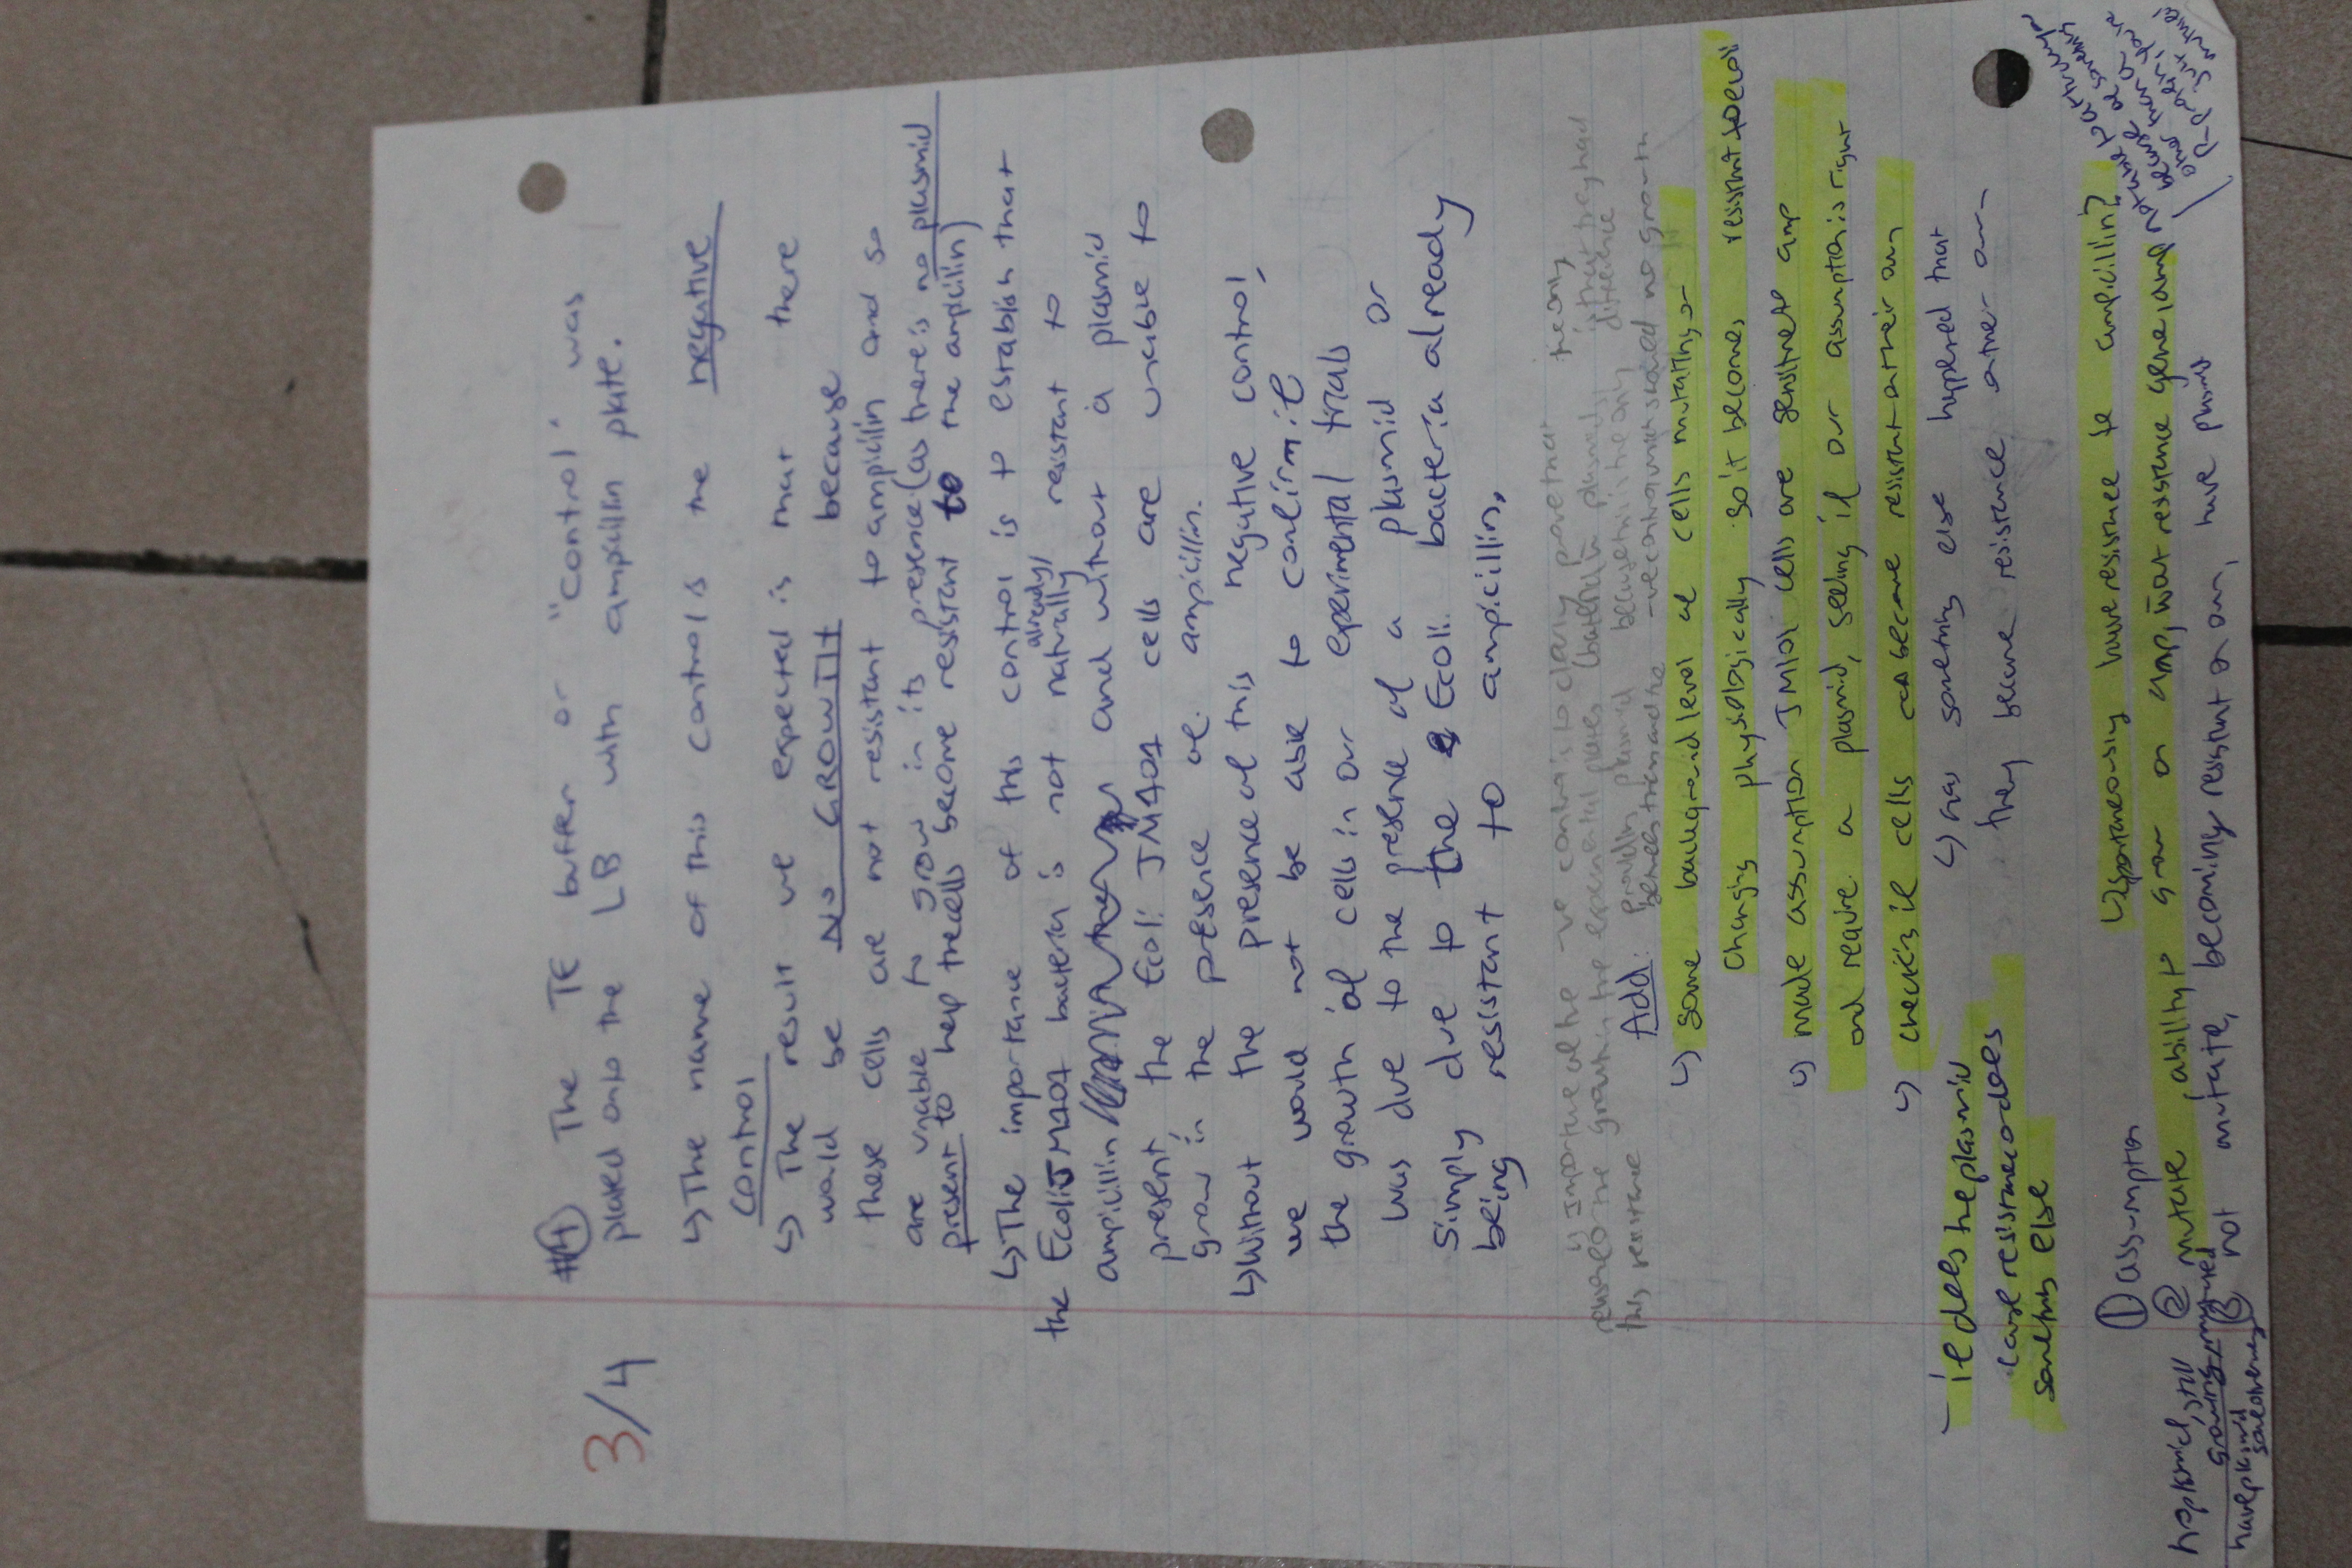 3/4
#4 The TE buffer or "control" was
plated onto the LB with ampicillin plate.
↳ The name of this control is the negative
control
↳ The result we expected is that there
would be NO GROWTH because
these cells are not resistant to ampicilin and so
are unable to grow in its presence (as there is no plasmid
present to help the cells become resistant to the ampicillin)
↳ The importance of this control is to establish that
already/
the Ecoli JM101 bacteria is not naturally resistant to
ampicillin and without a plasmid
present, the Ecoli JM101 cells are unable to
grow in the presence of ampicillin.
↳ Without the presence of this negative control,
we would not be able to confirm if
the growth of cells in our experimental trials
was due to the presence of a plasmid or
simply due to the Ecoli bacteria already
being resistant to ampicillin,
↳ Importance of the -ve control is to clearly prove that the only
reason for the growth in the experimental plates (bacteria plasmids) is that they had
this resistance plasmid because this is the only difference
between them and the -ve control which showed no growth
Add:
↳ some background level of cells mutating or
changing physiologically so it becomes resistant to ecoli
↳ made assumption JM101 cells are sensitive to amp
and require a plasmid, seeing if our assumption is right
↳ checking if cells can become resistant other any
↳ has something else happened that
they became resistance other am
- if does the plasmid
cause resistance or does
something else
① assumption
↳ spontaneously have resistance to ampicillin?
② mutate, ability to grow on amp, w/out resistance gene and
no plasmid, still
growing mutated
③ not mutate, becoming resistant on own, have plasmid
have plasmid
some other way